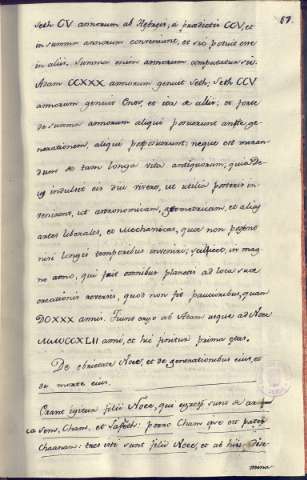 57.
Seth CV annorum ab Hebreis, a predictis CCV, et
in summa annorum conveniunt, et sic potuit esse
in aliis. Summa enim annorum computatur sic.
Adam CCXXX annorum genuit Seth; Seth CCV
annorum genuit Enos, et ita de aliis; et forte
de summa annorum aliqui posuerunt ante ge-
nerationem, aliqui postposuerunt; neque est miran-
dum de tam longa vita antiquorum, quia De-
us indulsit eis diu vivere, ut utilia posteris in-
venirent, ut astronomicam, geometricam, et alias
artes liberales, et Mechanicas, quas non potero
nisi longis temporibus invenire; scilicet, in mag
no anno, qui fuit omnibus planetis ad loca sua
creationis reversis, quod non fit paucioribus, quam
DCXXX annis. Fiunt ergo ab Adam usque ad Noe
MMCCXLII anni, et hic ponitur prima etas.
De ebrietate Noue, et de generationibus eius, et
de morte eius.
Erant igitur filii Noee, qui egressi sunt de ar-
ca Sem, Cham, et Jafeth: porro Cham ipse est pater
Chanaan: tres isti sunt filii Noee, et ab his dise-
mina